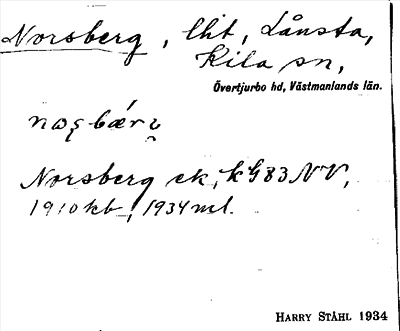 Norsberg, lht, Lånsta,
Kila sn,
Övertjurbo hd, Västmanlands län.
Norsberg ek, kG83NV,
1910 kb, 1934 ml.
HARRY STÅHL 1934